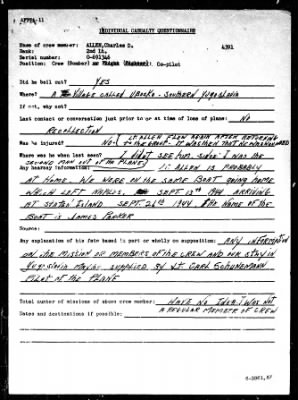 AFPPA-11
INDIVIDUAL CASUALTY QUESTIONNAIRE
Name of crew member: ALLEN, Charles D. 4391
Rank: 2nd Lt.
Serial number: O-691346
Position: Crew (Bomber) or Co-pilot
Did he bail out? YES
Where? A Village called - SOUTHERN Yugoslavia
If not, why not?
Last contact or conversation just prior to or at time of loss of plane: No
RECOLLECTION
Was he injured? NO - If ALLEN FLEW AGAIN AFTER RETURNING
to the GROUP. It WAS then that HE WAS WOUNDED
Where was he when last seen? I DIDNT SEE HIM, SINCE I WAS THE
SECOND MAN OUT OF THE PLANE
Any hearsay information: Lt ALLEN IS PROBABLY
AT HOME. WE WERE ON THE SAME BOAT GOING HOME
WHICH LEFT NAPLES, SEPT 13th 1944 ARRIVING
AT STATEN ISLAND SEPT 26th 1944 The NAME OF the
BOAT IS JAMES PARKER
Source:
Any explanation of his fate based in part or wholly on supposition: ANY INFORMATION
ON the MISSION OR MEMBERS OF the CREW AND OUR STAY IN
Yugoslavia MAY BE SUPPLIED By Lt CARL SCHUNEMANN
PILOT OF the PLANE
Total number of missions of above crew member: HAVE NO IDEA I WAS NOT
A REGULAR MEMBER OF CREW
Dates and destinations if possible: